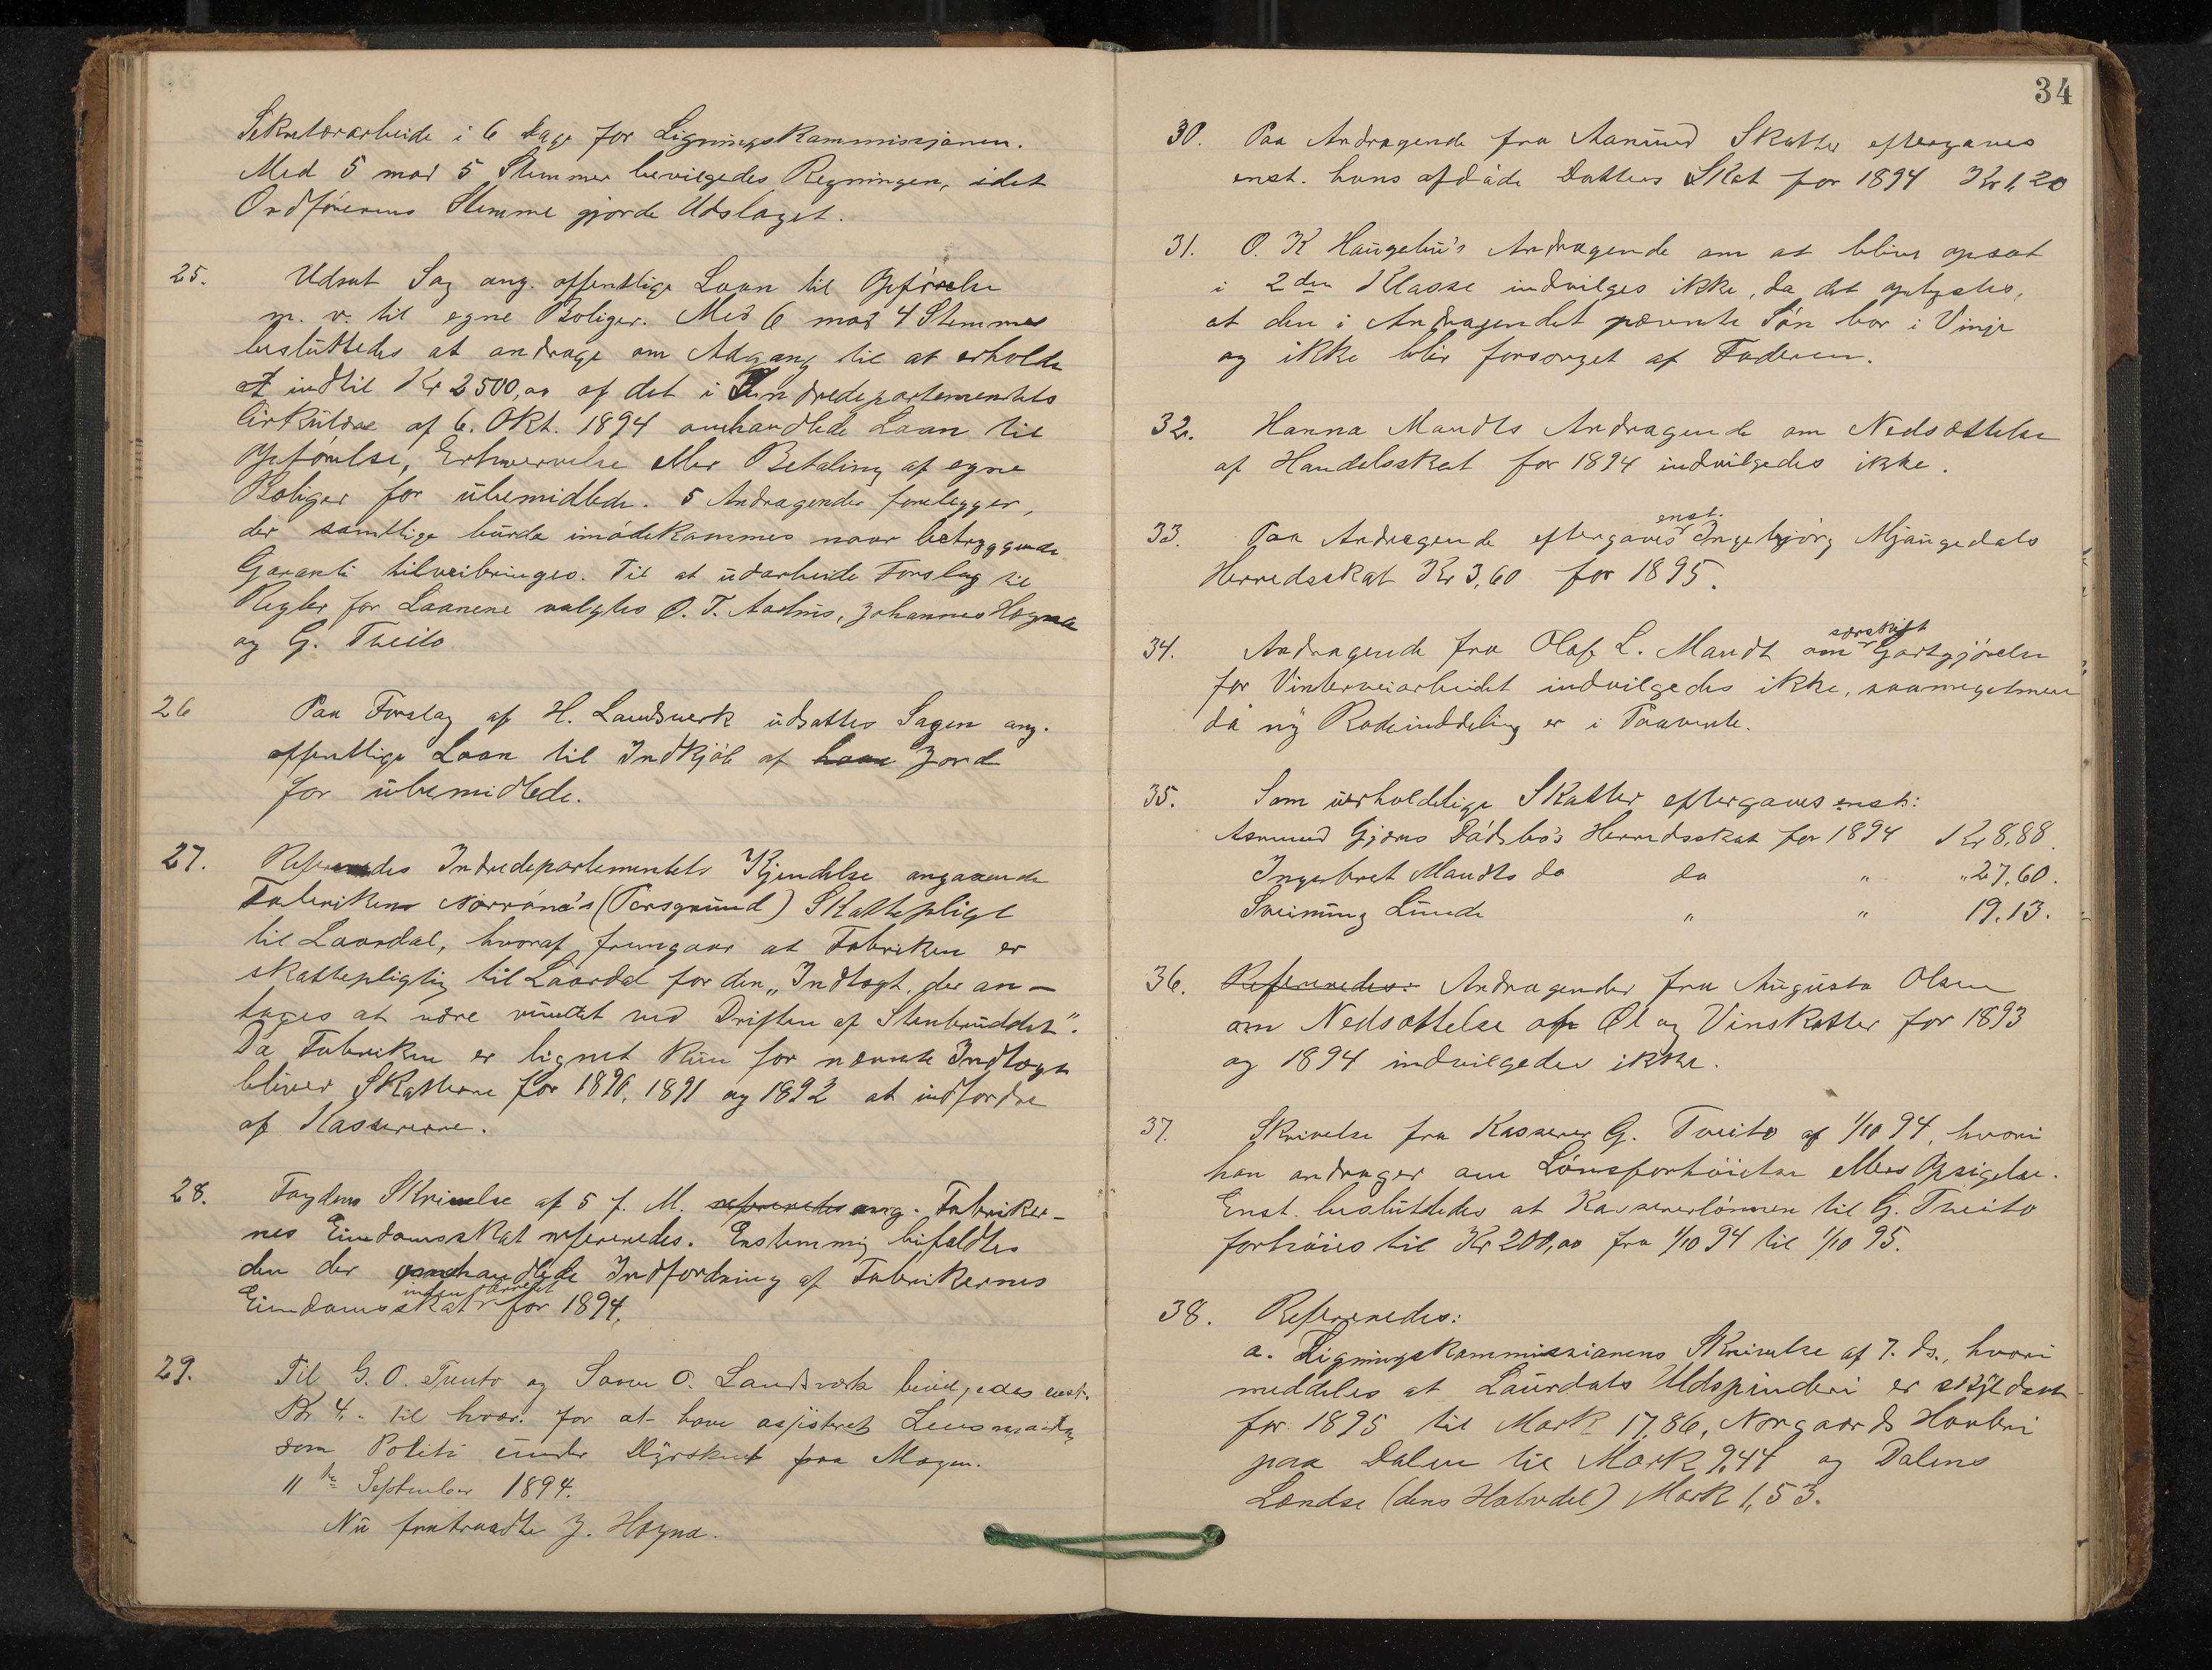 Sekretærarbeide i 6 Dage for Ligningskommissjonen.
Med 5 mod 5 Stemmer bevilgedes Regningen, idet
Ordførerens Stemme gjorde Udslaget.
25. Udsat Sag ang. offentlige Laan til Opførelse
m. v. til egne Boliger. Med 6 mod 4 Stemmer
besluttedes at andrage om Adgang til at erholde
indtil Kr 2500,00 af det i Indredepartementets
Cirkulære af 6. Okt. 1894 omhandlede Laan til
Opførelse, Erhvervelse eller Betaling af egne
Boliger for ubemidlede. 5 Andragender forelegger,
der samtlige burde imødekommes naar betryggende
Garanti tilveibringes. Til at udarbeide Forslag til
Regler for Laanene valgtes O. T. Aarhus, Johannes Høgna
og G. Tveito
26 Paa Forslag af H. Landsverk udsattes Sagen ang.
offentlige Laan til Indkjøb af Jord
for ubemidlede.
27. Refereredes Indredepartementets Kjendelse angaaende
Fabriken Norröna's (Porsgrund) Skattepligt
til Laardal, hvoraf fremgaar at Fabriken er
skattepligtig til Laardal for den „Indtægt, der an-
tages at være vundet ved Driften af Stenbruddet".
Da Fabriken er lignet kun for nævnte Indtægt
bliver Skatterne for 1890, 1891 og 1892 at indfordre
af Kassererne.
28. Fogdens Skrivelse af 5 f. M. refereredes ang. Fabriker-
nes Eiendomsskat refereredes. Enstemmig bifaldtes
den der omhandlede Indfordring af Fabrikernes
Eiendomsskat inden Herredet for 1894.
29. Til G. O. Tveito og Soren O. Landsverk bevilgedes enst.
Kr 4,- til hver for at have assisteret Lensmanden
som Politi under Dyrskuet paa Mogen.
11te September 1894.
Nu fratraadte J. Høgna.
34
30. Paa Andragende fra Aamund Skatter eftergaves
enst. hans afdøde Datters Skat for 1894 Kr 1,20
31. O. K Haugelin's Andragende om at blive opsat
i 2den Klasse indvilges ikke, da det oplystes,
at den i Andragendet nævnte Søn bor i Vinje
og ikke blir forsørget af Faderen.
32. Hanna Mandts Andragende om Nedsættelse
af Handelsskat for 1894 indvilgedes ikke.
33. Paa Andragende eftergaves enst. Ingebjørg Mjaugedals
Herredsskat Kr 3,60 for 1895.
34. Andragende fra Olaf L. Mandt om særskilt Godtgjørelse
for Vinterveiarbeidet indvilgedes ikke, saameget mere
da ny Rodeinddeling er i Paavente.
35. Som uerholdelige Skatter eftergaves enst:
Asmund Gjøens Dådsbo's Herredsskat for 1894 Kr 8,88.
Ingebret Mandts do do " " 27,60.
Sveinung Lunde " " 19,13.
36. Refereredes: Andragender fra Augusta Olsen
om Nedsættelse af Øl og Vinskatter for 1893
og 1894 indvilgedes ikke.
37. Skrivelse fra Kasserer G. Tveito af 1/10 94, hvori
han andrager om Lønsforhøielse ellers Opsigelse.
Enst. besluttedes at Kassererlønnen til G. Tveito
forhøies til Kr 200,00 fra 1/10 94 til 1/10 95.
38. Refereredes:
a. Ligningskommissionens Skrivelse af 7. ds., hvori
meddeles at Laurdals Uldspinderi er skyldsat
for 1895 til Mark 17,86, Norgaards Havbri
paa Dalen til Mark 9,44 og Dalens
Lændse (dens Halvdel) Mark 1,53.